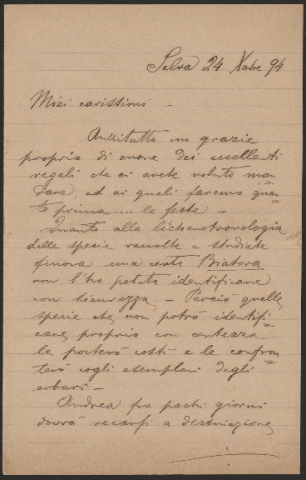 Selva 24 Xbre 94
Miei carissimi -
Anzitutto un grazie
proprio di cuore dei eccellenti
regali che ci avete voluto man=
dare, ed ai quali faremo quan=
to prima... le feste -
Quanto alla lichenostronologia
delle specie raccolte e studiate
finora una certa Biatora
non l'ho potuta identificare
con sicurezza - Perciò quelle
specie che non potrò identifi=
care proprio con certezza
le porterò costì e le confron=
terò cogli esemplari degli
erbari -
Andrea fra pochi giorni
dovrà recarsi a destinazione